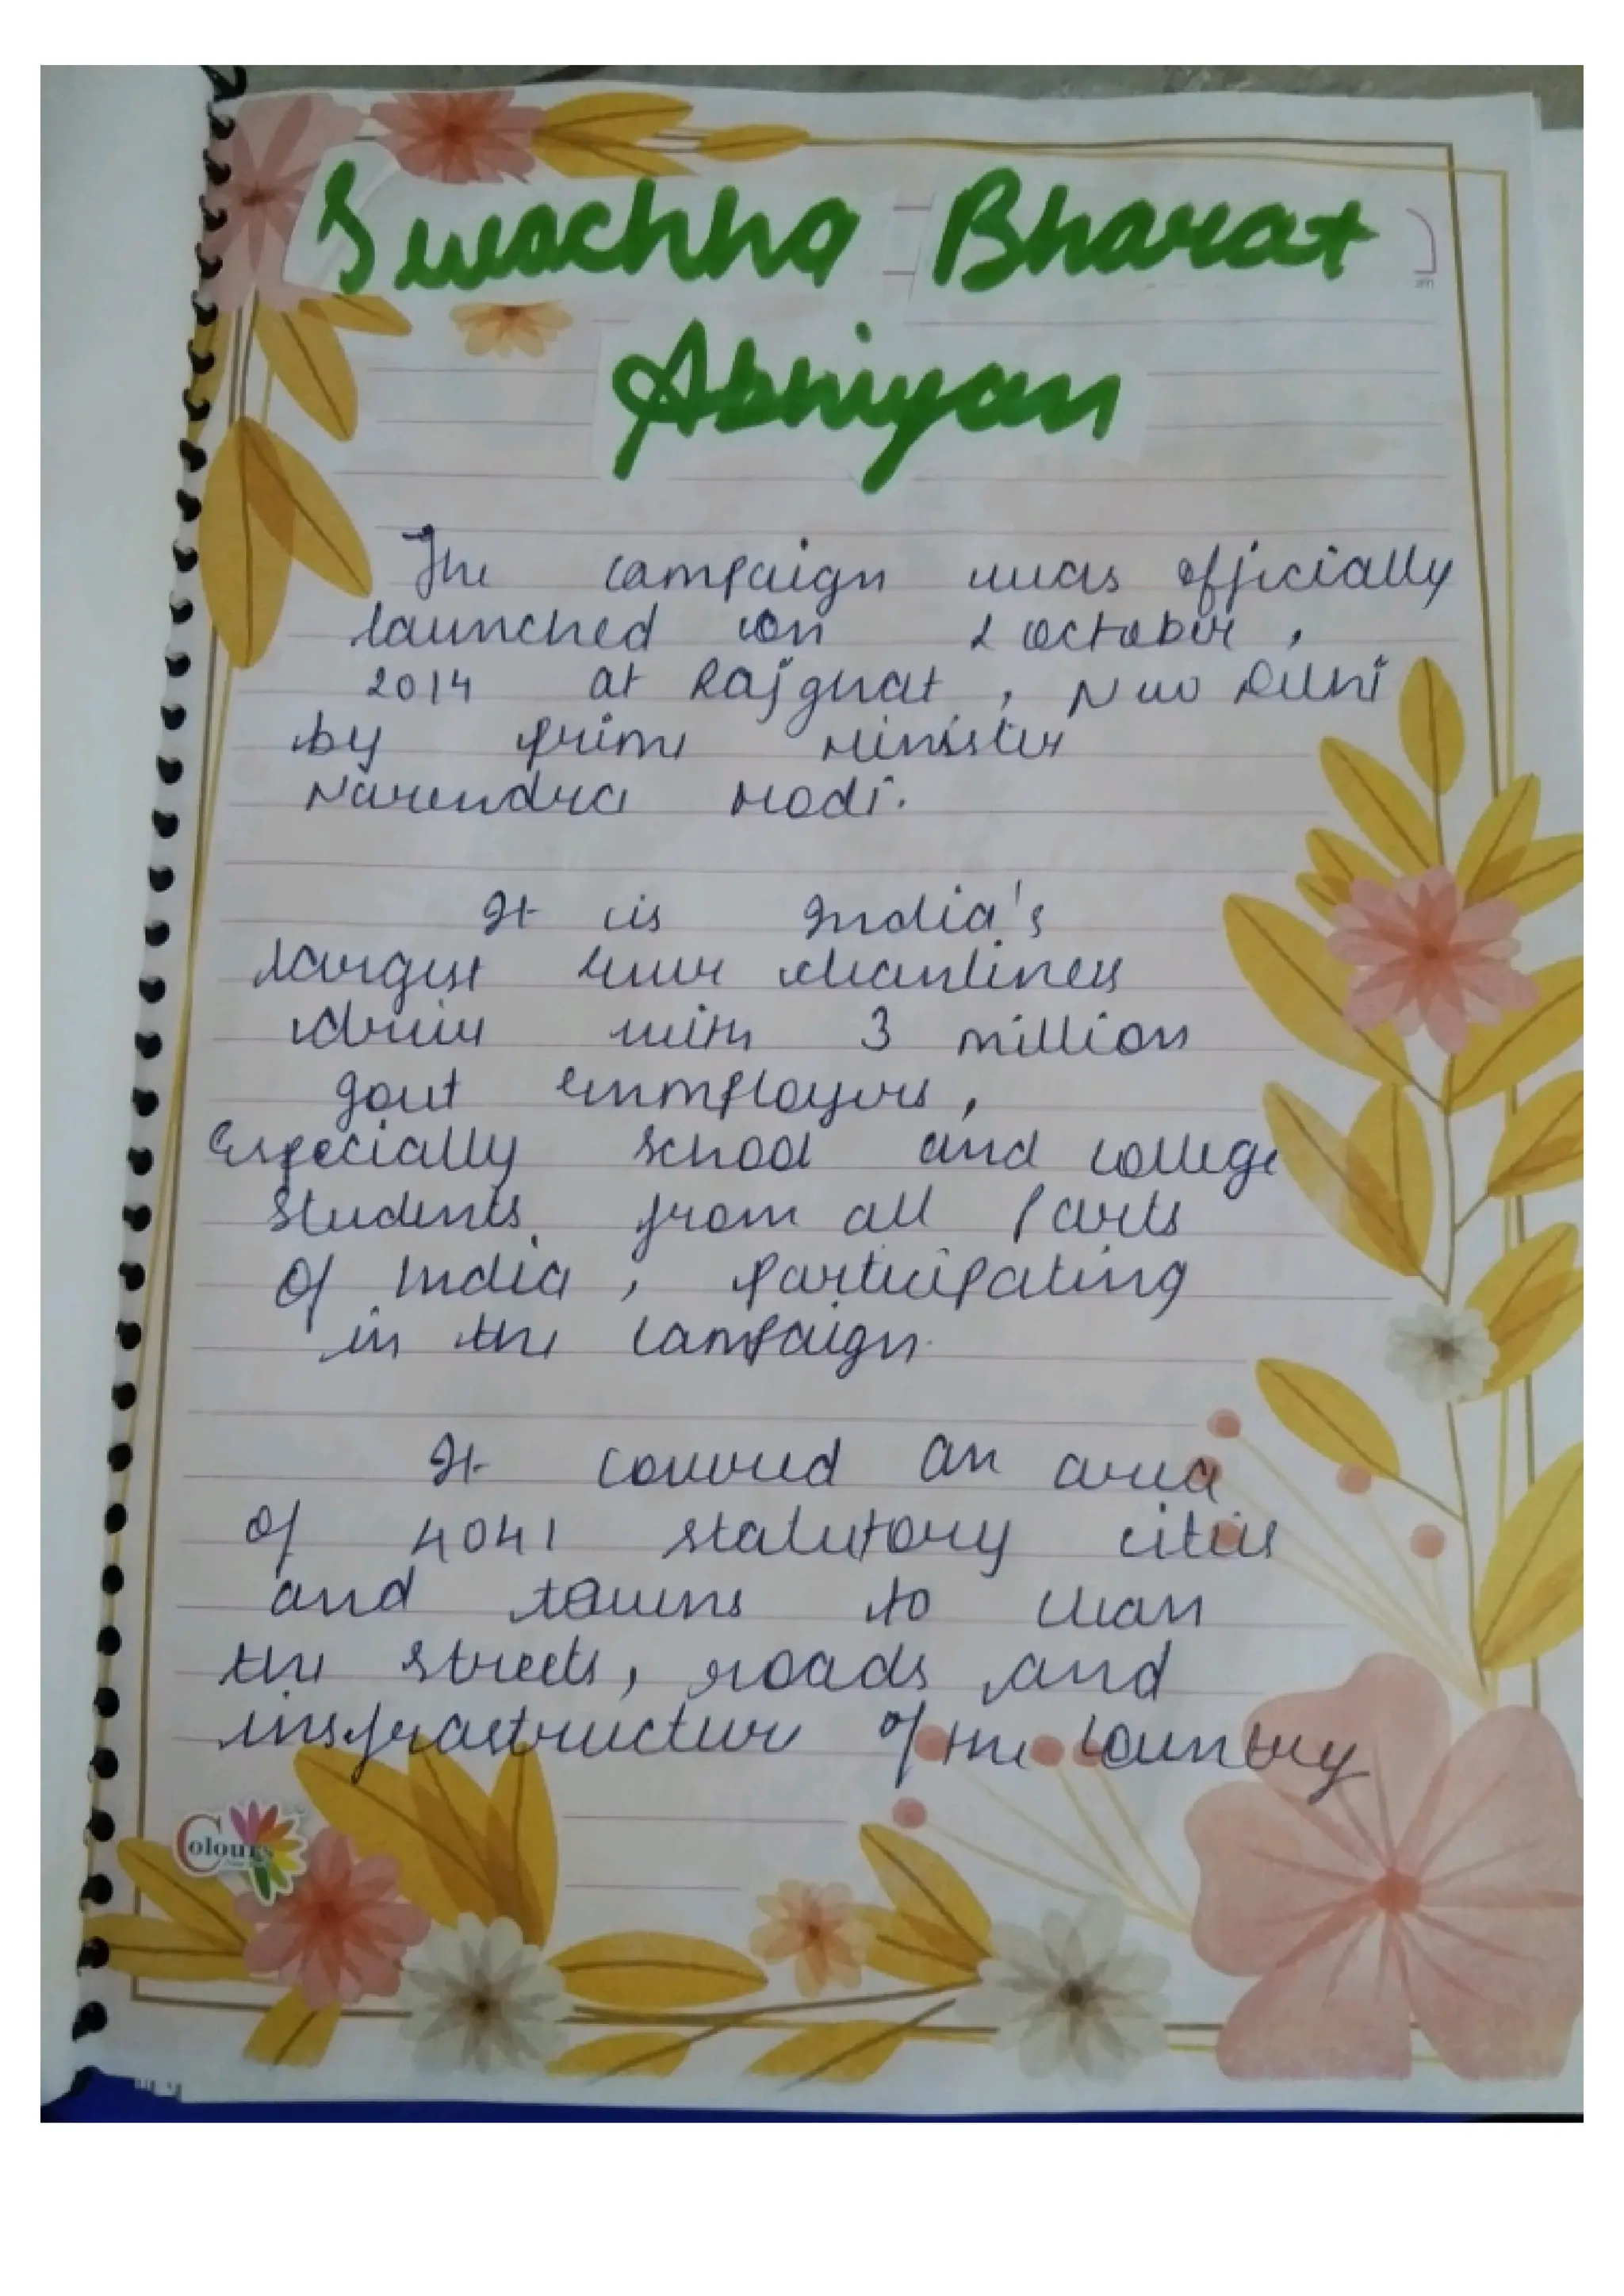 Swachha Bharat
Abhiyan
The campaign was officially
launched on 2 october,
2014 at Rajghat, New Delhi
by prime Minister
Narendra Modi.
It is India's
largest ever cleanliness
drive with 3 million
govt emmployees,
Especially school and college
students from all parts
of India, participating
in the campaign.
It covered an area
of 4041 statutory cities
and towns to clean
the streets, roads and
insfrastructure of the country
Colours